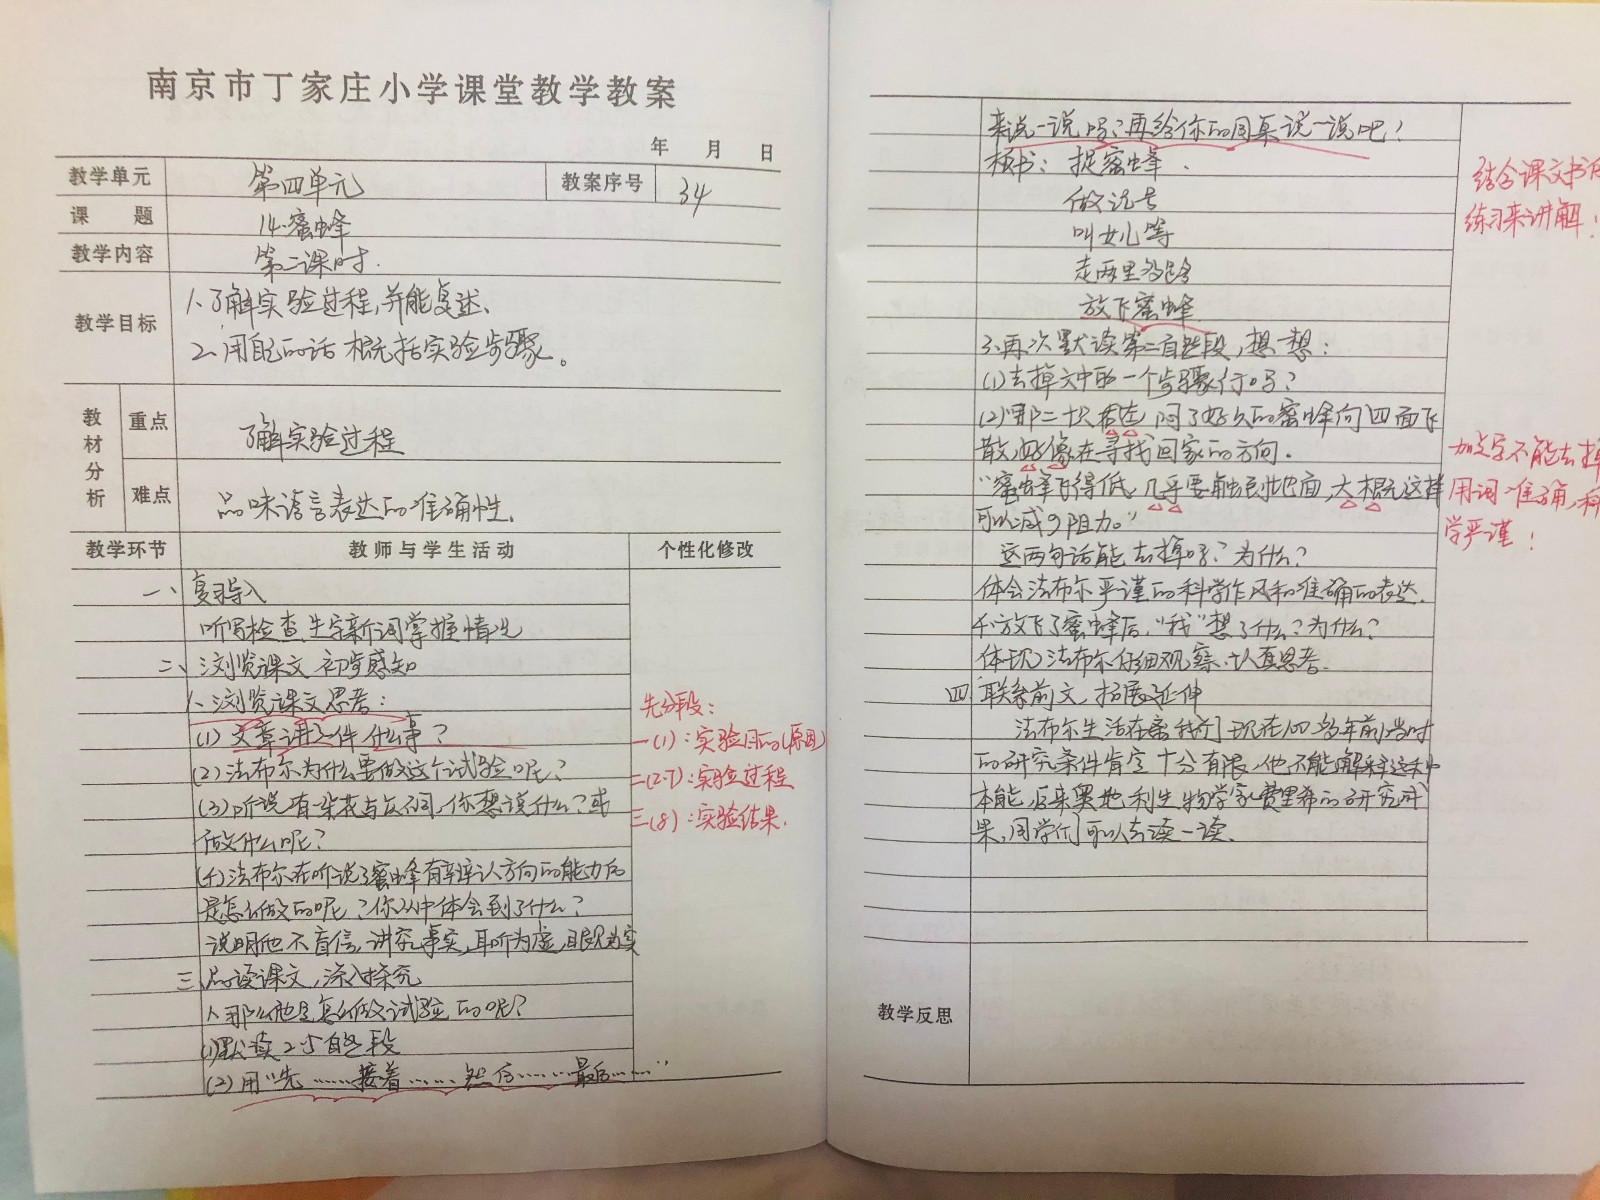 南京市丁家庄小学课堂教学教案
年 月 日
教学单元 第四单元 教案序号 34
课 题 14.蜜蜂
教学内容 第二课时.
教学目标 1、了解实验过程,并能复述、
2、用自己的话概括实验步骤。
教材分析 重点 了解实验过程
难点 品味语言表达的准确性.
教学环节 教师与学生活动 个性化修改
一、复习导入
听写检查生字新词掌握情况
二、浏览课文 初步感知
1、浏览课文思考:
(1)文章讲了一件什么事?
(2)法布尔为什么要做这个试验呢?
(3)听说有朵花与众不同,你想说什么?或
做什么呢?
(4)法布尔在听说了蜜蜂有辨认方向的能力后
是怎么做的呢?你从中体会到了什么?
说明他不盲信,讲究事实,耳听为虚,眼见为实
三、品读课文,深入探究
1、那么他是怎么做试验的呢?
(1)默读2-5自然段
(2)用“先……接着……然后……最后……”
先分段:
一(1):实验目的(原因)
二(2-7):实验过程
三(8):实验结果.
来说一说吗?再给你的同桌说一说吧!
板书:捉蜜蜂.
做记号
叫女儿等
走两里多路
放飞蜜蜂
3、再次默读第二自然段,想一想:
(1)去掉文中的一个步骤行吗?
(2)“那二十只左右闷了好久的蜜蜂向四面飞
散,好像在寻找回家的方向.
“蜜蜂飞得低,几乎要触到地面,大概这样
可以减少阻力。”
这两句话能去掉吗?为什么?
体会法布尔严谨的科学作风和准确的表达.
4、放飞了蜜蜂后,“我”想了什么?为什么?
体现法布尔仔细观察、认真思考.
四 联系前文,拓展延伸
法布尔生活在离我们现在100多年前,当时
的研究条件肯定十分有限,他不能解释这种
本能,后来奥地利生物学家费里希的研究成
果,同学们可以去读一读.
结合课文书后
练习来讲解!
加点字不能去掉
用词准确,科
学严谨!
教学反思